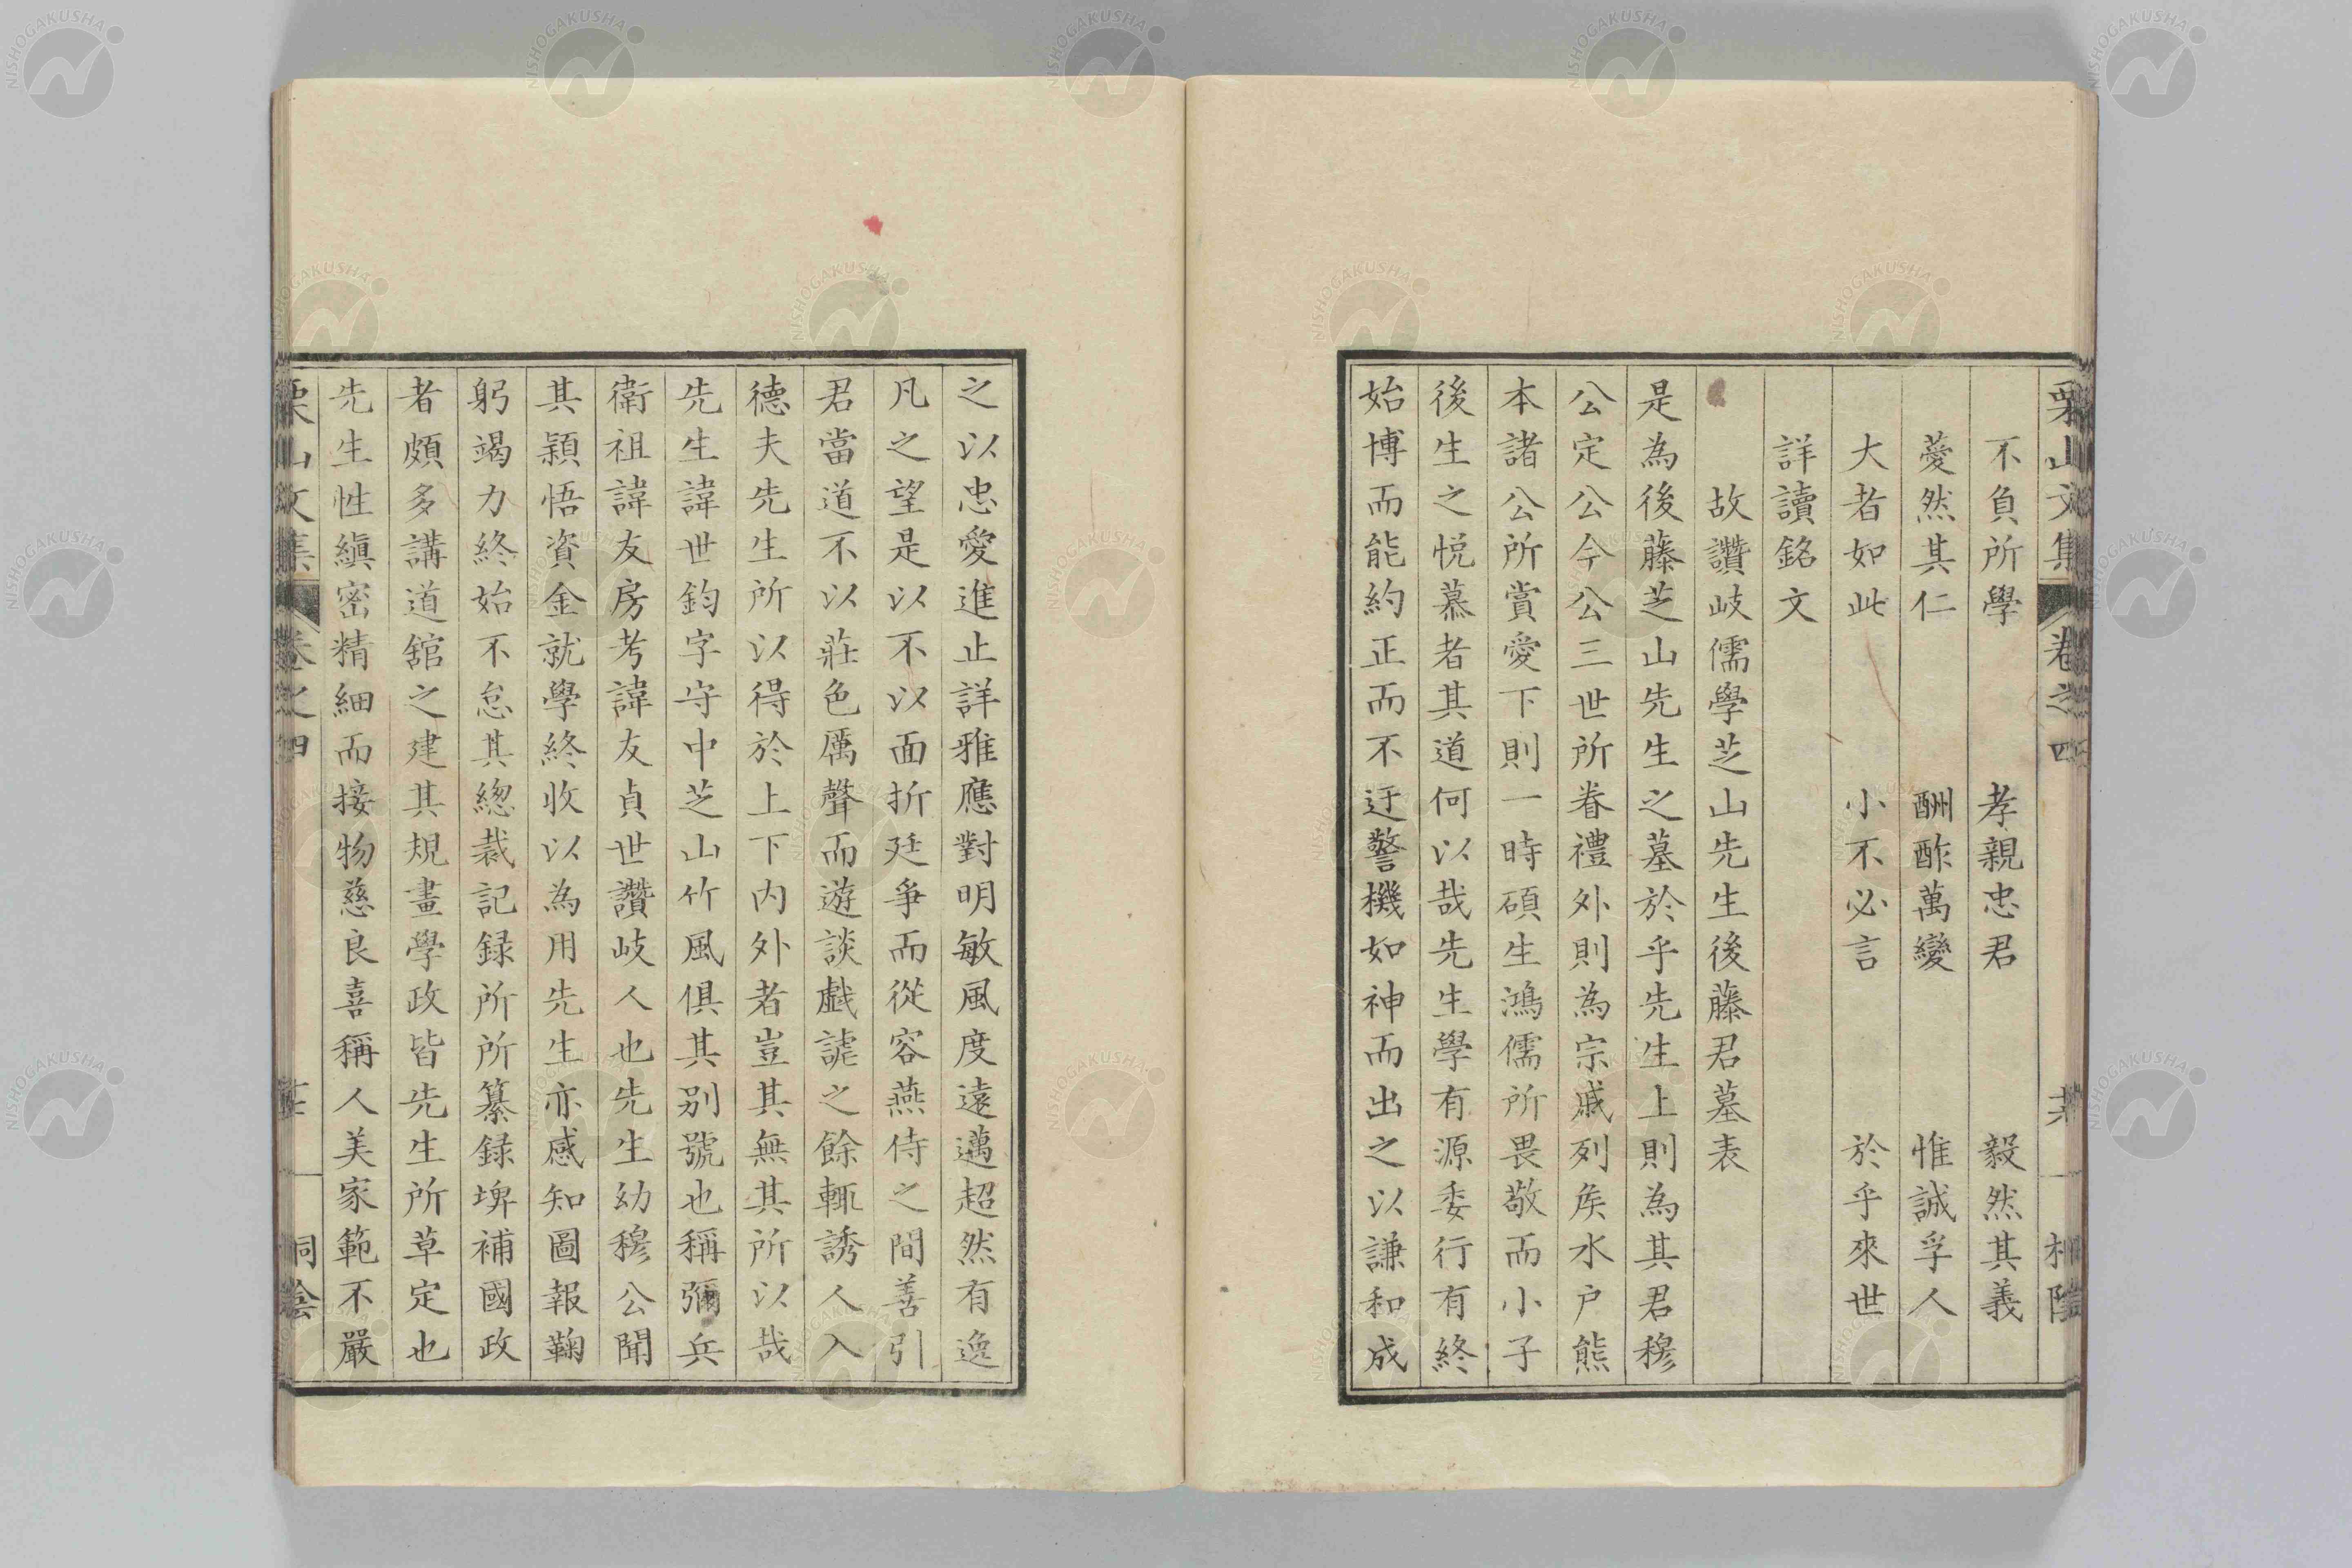 栗山文集 卷之四
不負所學 孝親忠君 毅然其義
薆然其仁 酬酢萬變 惟誠孚人
大者如此 小不必言 於乎來世
詳讀銘文
故讚岐儒學芝山先生後藤君墓表
是為後藤芝山先生之墓於乎先生上則為其君穆
公定公今公三世所眷禮外則為宗戚列矦水户熊
本諸公所賞愛下則一時碩生鴻儒所畏敬而小子
後生之悦慕者其道何以哉先生學有源委行有終
始博而能約正而不迂警機如神而出之以謙和成
之以忠愛進止詳雅應對明敏風度遠邁超然有逸
凡之望是以不以面折廷爭而從容燕侍之間善引
君當道不以莊色厲聲而遊談戲謔之餘輒誘人入
德夫先生所以得於上下内外者豈其無其所以哉
先生諱世鈞字守中芝山竹風俱其别號也稱彌兵
衛祖諱友房考諱友貞世讚岐人也先生幼穆公聞
其穎悟資金就學終收以為用先生亦感知圖報鞠
躬竭力終始不怠其緫裁記録所所纂録埤補國政
者頗多講道舘之建其規畫學政皆先生所草定也
先生性縝密精細而接物慈良喜稱人美家範不嚴
栗山文集 卷之四
NISHOGAKUSHA